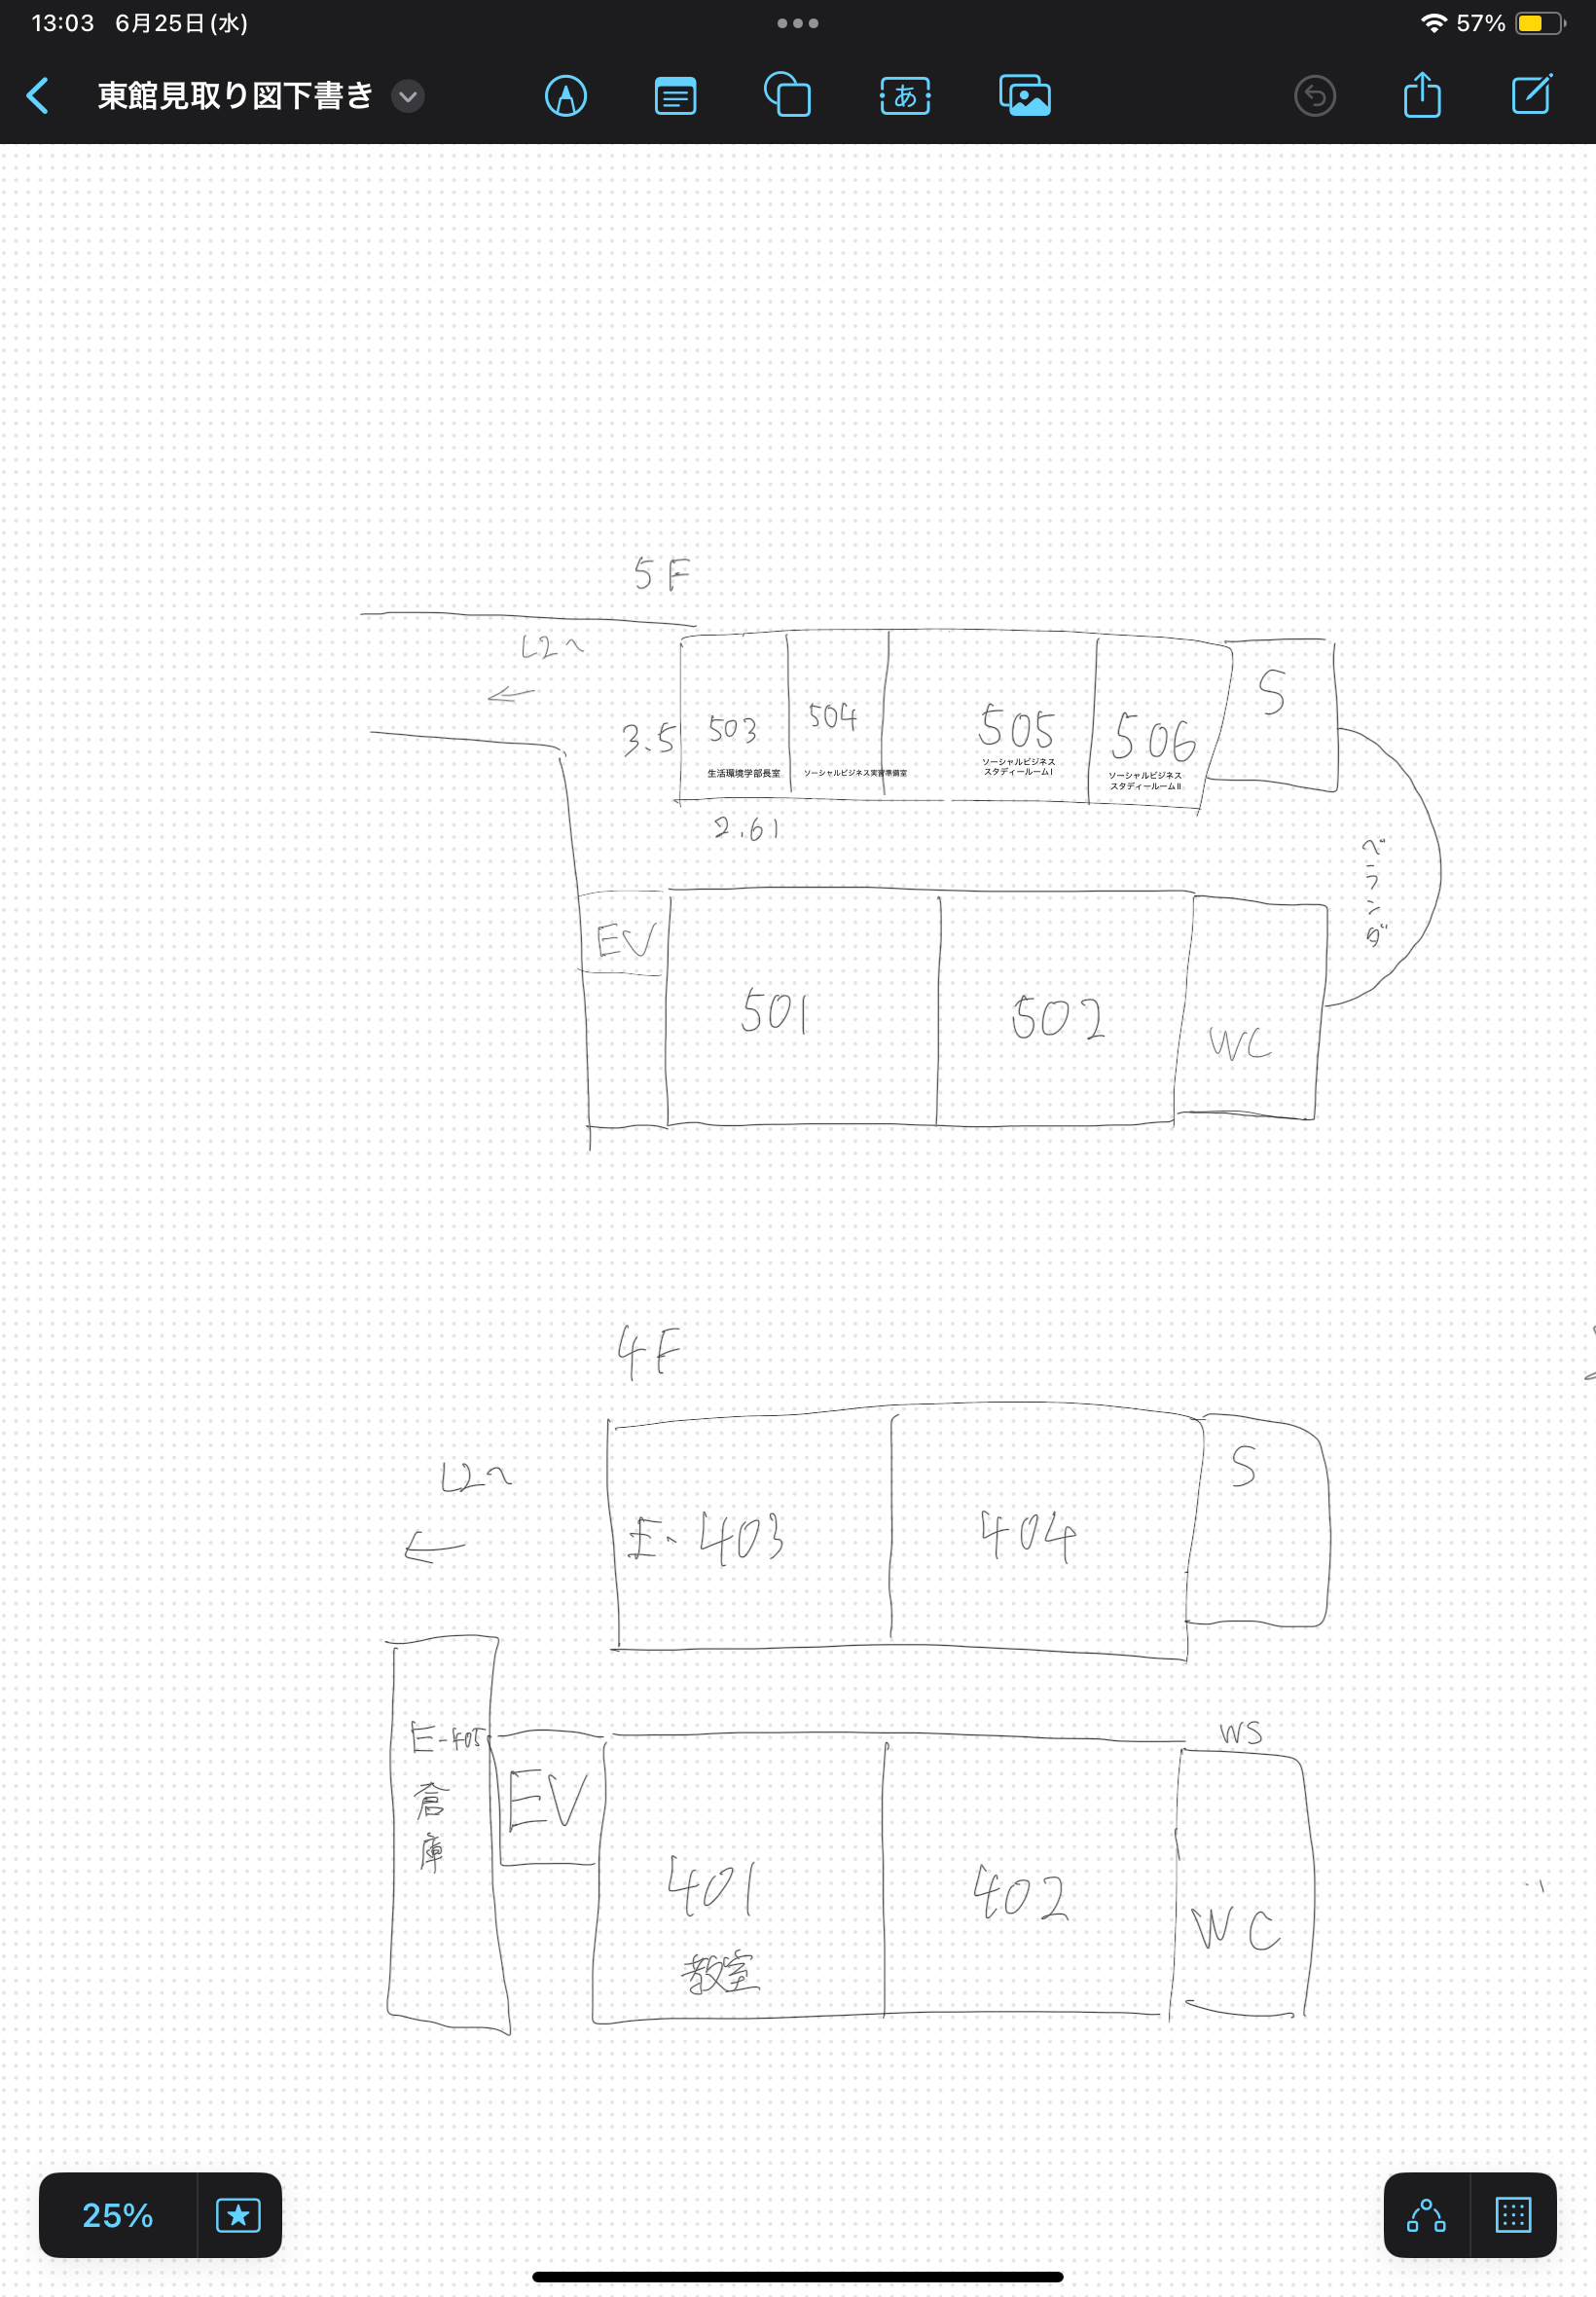 13:03 6月25日(水)
57%
東館見取り図下書き
あ
5F
L2へ
←
3.5
503
生活環境学部長室
504
ソーシャルビジネス実習準備室
505
ソーシャルビジネス
スタディールームⅠ
506
ソーシャルビジネス
スタディールームⅡ
S
2.61
ベランダ
EV
501
502
WC
4F
L2へ
←
E-403
404
S
E-405
倉庫
EV
401
教室
402
WS
WC
25%